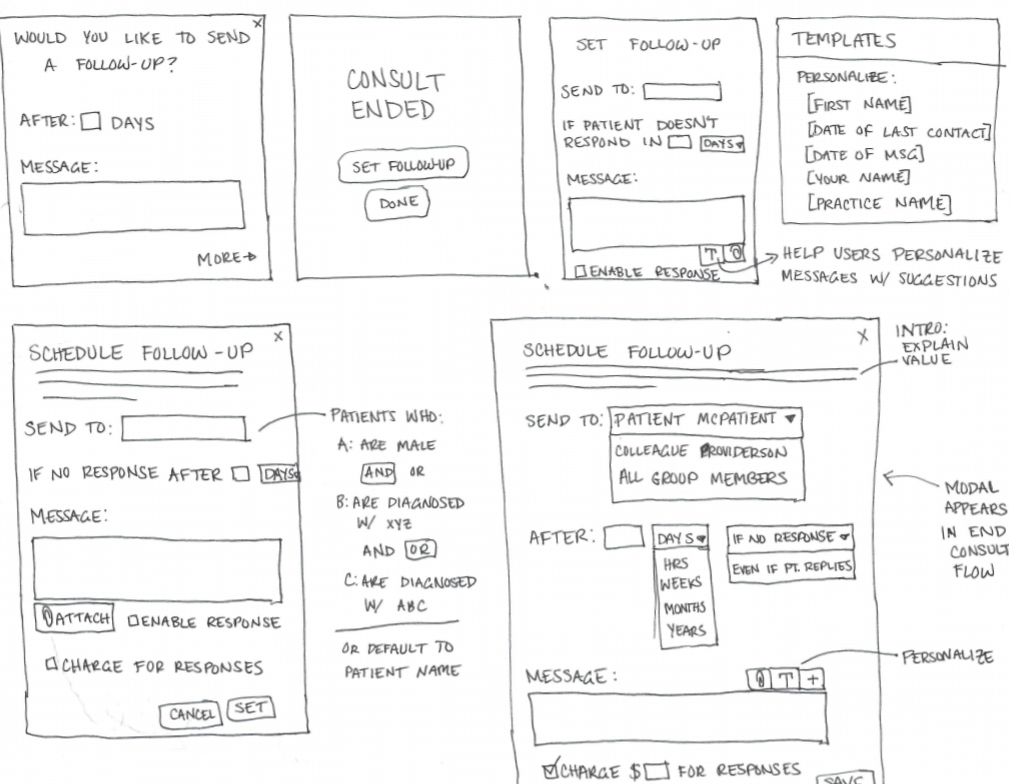 WOULD YOU LIKE TO SEND
A FOLLOW-UP?
X
AFTER: DAYS
MESSAGE:
MORE→
CONSULT
ENDED
SET FOLLOW-UP
DONE
SET FOLLOW-UP
SEND TO:
IF PATIENT DOESN'T
RESPOND IN DAYS▾
MESSAGE:
T
ENABLE RESPONSE
TEMPLATES
PERSONALIZE:
[FIRST NAME]
[DATE OF LAST CONTACT]
[DATE OF MSG]
[YOUR NAME]
[PRACTICE NAME]
HELP USERS PERSONALIZE
MESSAGES W/ SUGGESTIONS
SCHEDULE FOLLOW-UP
X
SEND TO:
IF NO RESPONSE AFTER DAYS
MESSAGE:
ATTACH ENABLE RESPONSE
CHARGE FOR RESPONSES
CANCEL SET
PATIENTS WHO:
A: ARE MALE
AND OR
B: ARE DIAGNOSED
W/ XYZ
AND OR
C: ARE DIAGNOSED
W/ ABC
OR DEFAULT TO
PATIENT NAME
SCHEDULE FOLLOW-UP
X
SEND TO: PATIENT MCPATIENT ▾
COLLEAGUE PROVIDERSON
ALL GROUP MEMBERS
AFTER: DAYS▾ IF NO RESPONSE ▾
HRS
WEEKS
MONTHS
YEARS
EVEN IF PT. REPLIES
MESSAGE: T +
CHARGE $ FOR RESPONSES
SAVE
INTRO:
EXPLAIN
VALUE
MODAL
APPEARS
IN END
CONSULT
FLOW
PERSONALIZE